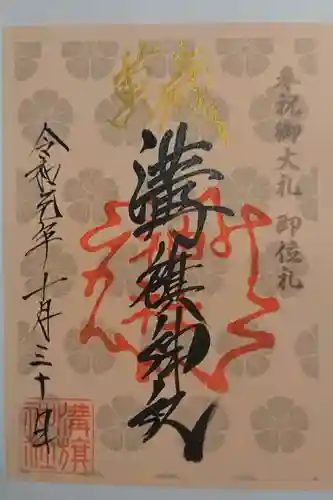 奉祝御大礼 即位礼
溝旗神社
令和元年十月三十日
溝旗
神社